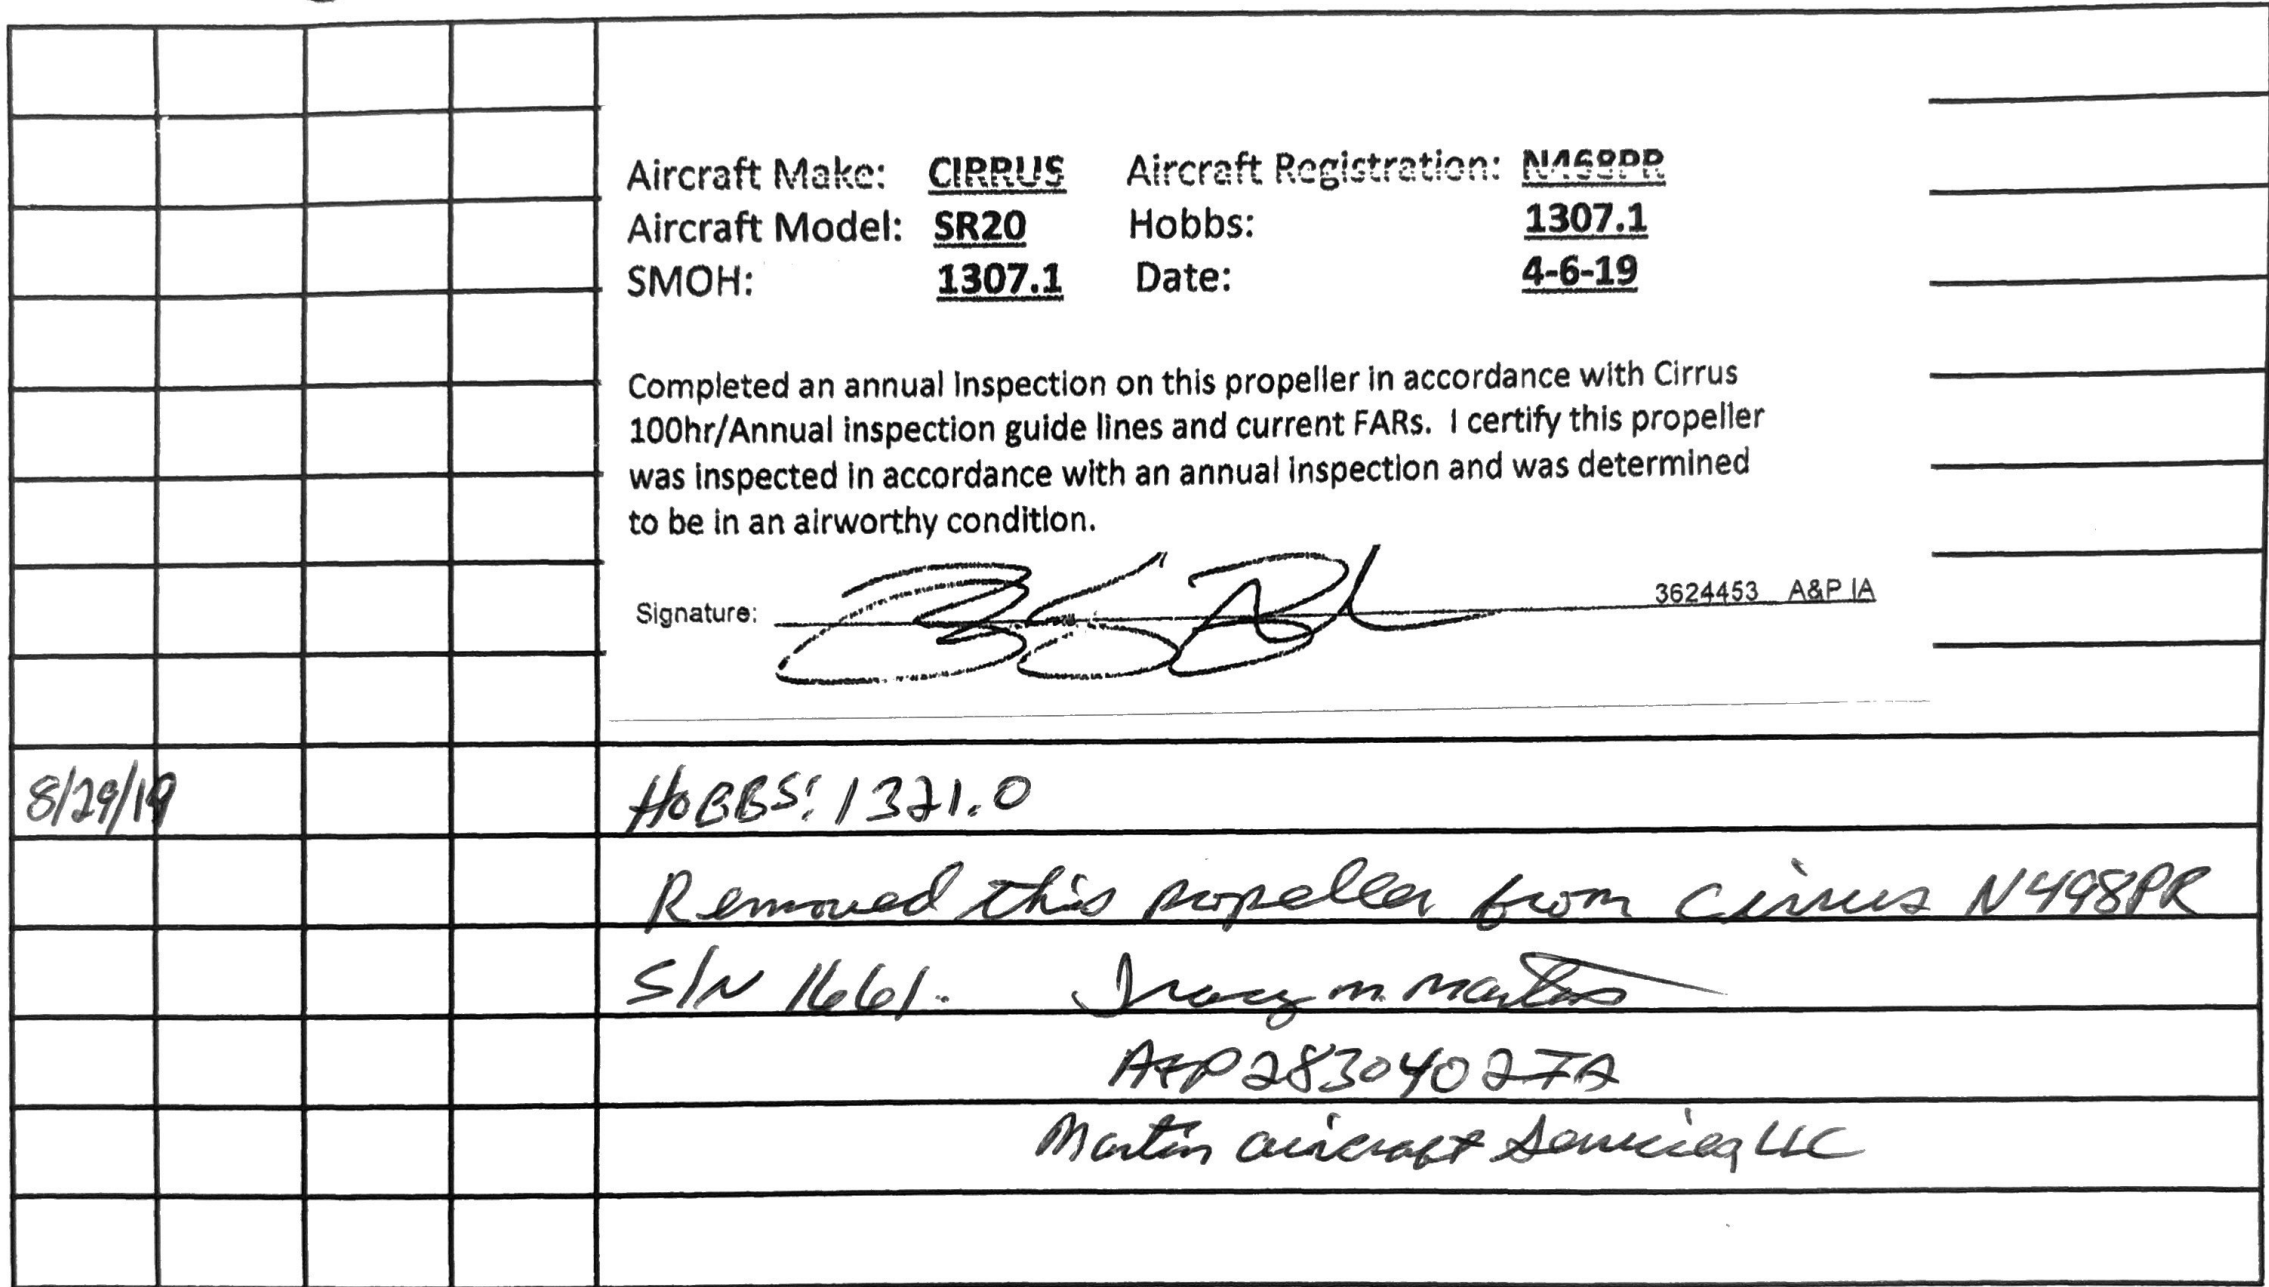 Aircraft Make: CIRRUS Aircraft Registration: N468PR
Aircraft Model: SR20 Hobbs: 1307.1
SMOH: 1307.1 Date: 4-6-19
Completed an annual inspection on this propeller in accordance with Cirrus
100hr/Annual inspection guide lines and current FARs. I certify this propeller
was inspected in accordance with an annual inspection and was determined
to be in an airworthy condition.
Signature: 3624453 A&P IA
8/29/19 HOBBS: 1321.0
Removed this propeller from Cirrus N498PR
S/N 1661. Tracy M. Martin
A&P 2830402 IA
Martin Aircraft Services LLC